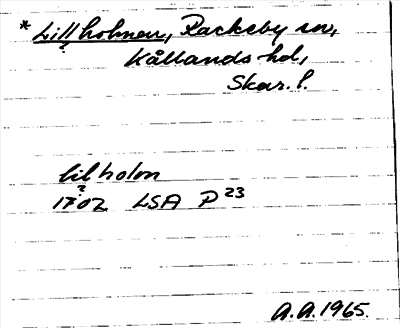 * Lillholmen, Rackeby sn,
Kållands hd,
Skar. l.
lilholm
?
1702 LSA P 23
A.A. 1965.